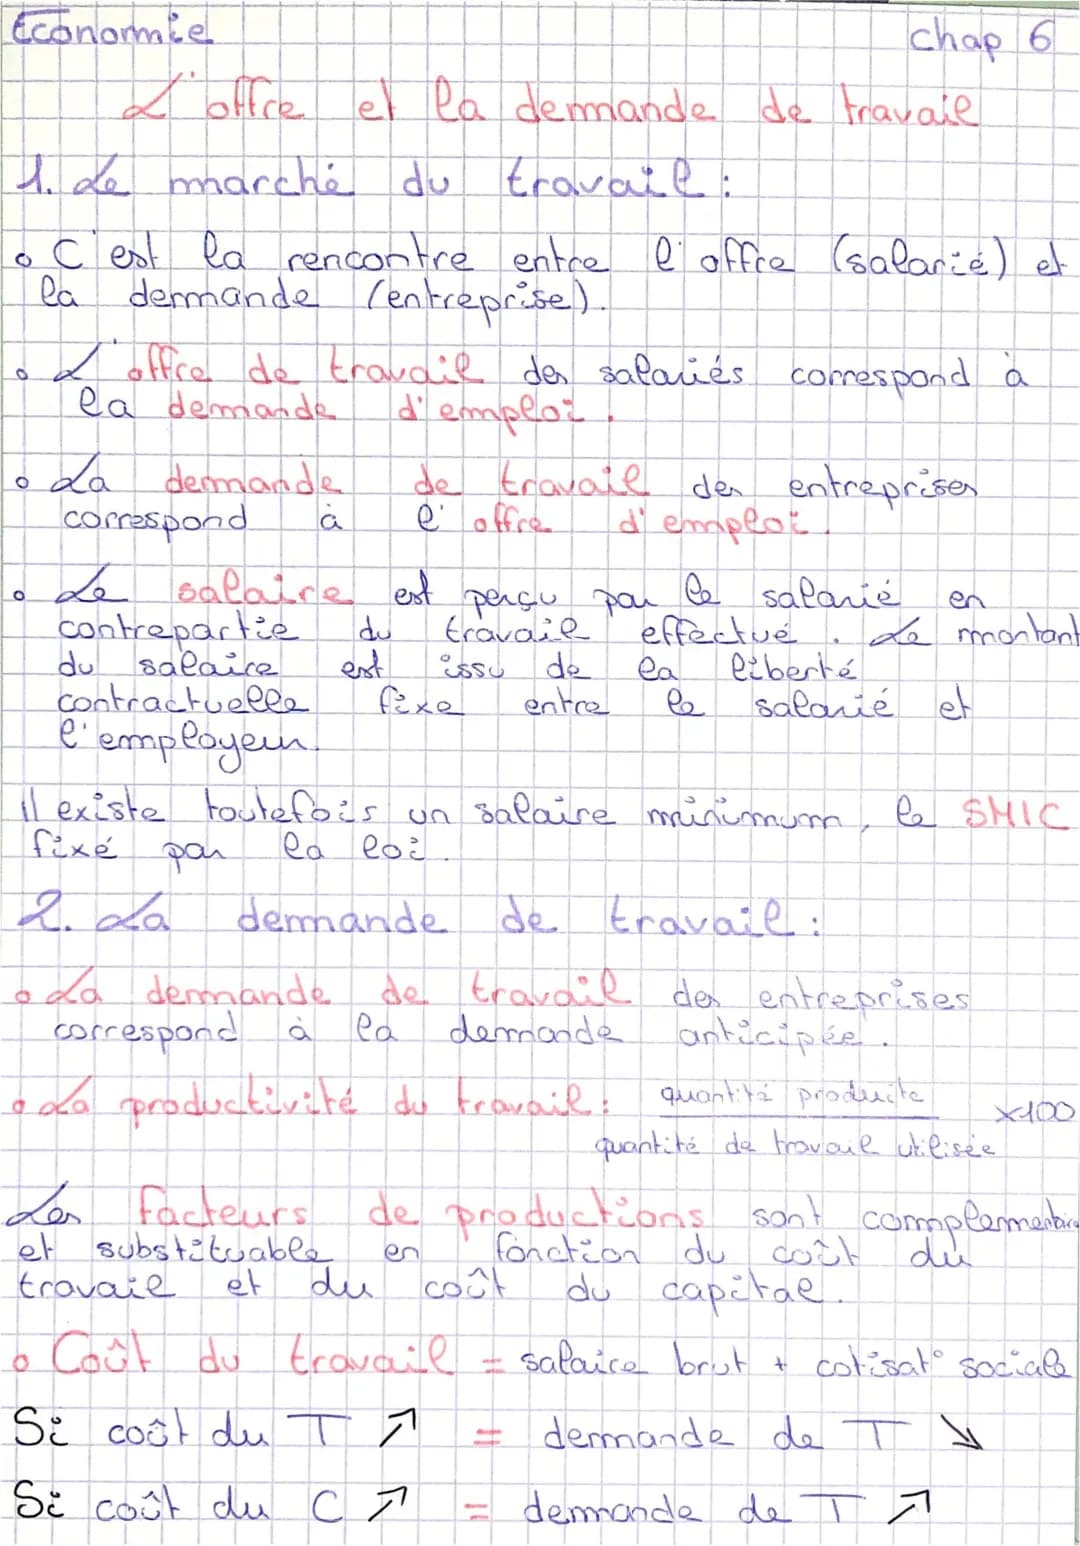 Économie chap 6
L'offre et la demande de travail
1. Le marché du travail :
C'est la rencontre entre l'offre (salarié) et
la demande (entreprise).
L'offre de travail des salariés correspond à
la demande d'emploi.
La demande de travail des entreprises
correspond à l'offre d'emploi.
Le salaire est perçu par le salarié en
contrepartie du travail effectué. Le montant
du salaire est issu de la liberté
contractuelle fixe entre le salarié et
l'employeur.
Il existe toutefois un salaire minimum, le SMIC
fixé par la loi.
2. La demande de travail :
La demande de travail des entreprises
correspond à la demande anticipée.
La productivité du travail : quantité produite x100
quantité de travail utilisée
Les facteurs de productions sont complémentaire
et substituable en fonction du coût du
travail et du coût du capital.
Coût du travail = salaire brut + cotisat° sociale
Si coût du T ↗ = demande de T ↘
Si coût du C ↗ = demande de T ↗